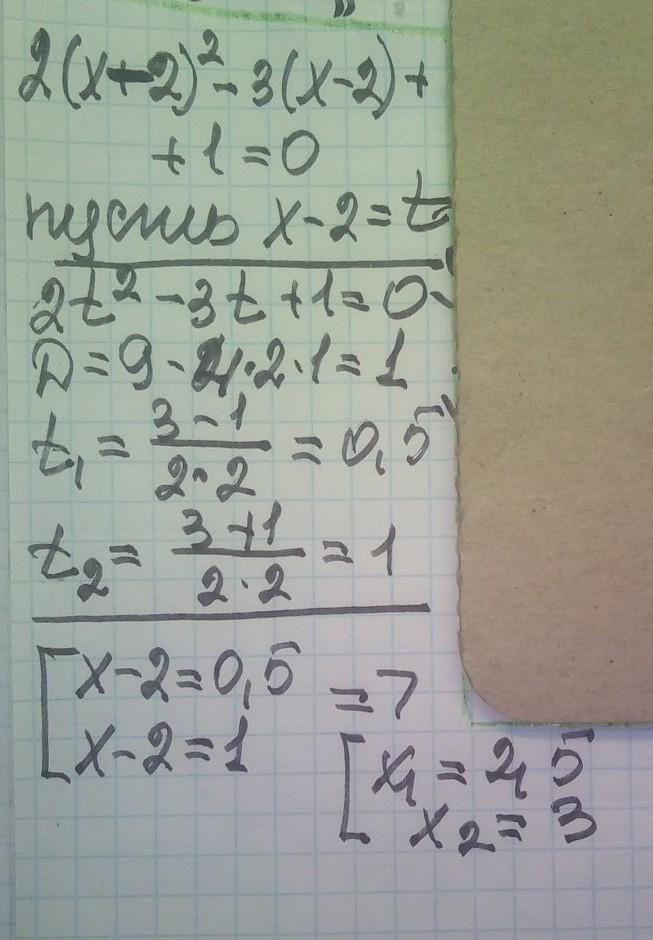 2(x-2)²-3(x-2)+
+1=0
пусть x-2=t
2t²-3t+1=0
D=9-4·2·1=1
t₁=(3-1)/(2·2)=0,5
t₂=(3+1)/(2·2)=1
[x-2=0,5
x-2=1
=>
[x₁=2,5
x₂=3